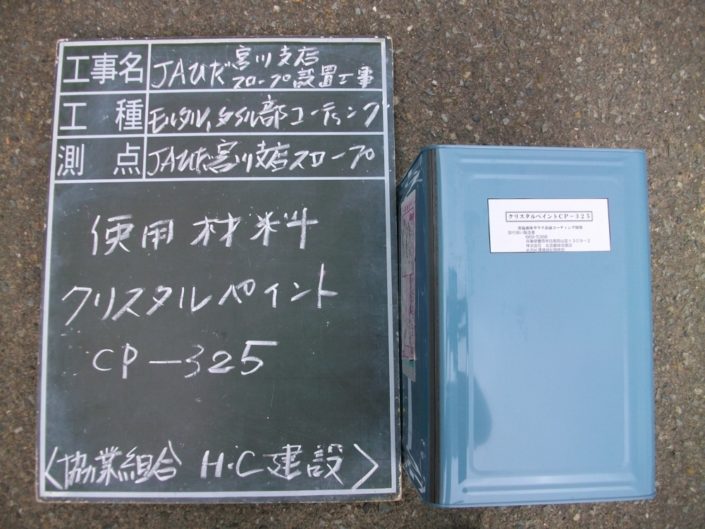 工事名 JAひだ宮川支店
スロープ設置工事
工種 モルタル、タイル部コーティング
測点 JAひだ宮川支店スロープ
使用材料
クリスタルペイント
CP-325
<協業組合 H・C建設>
クリスタルペイントCP-325